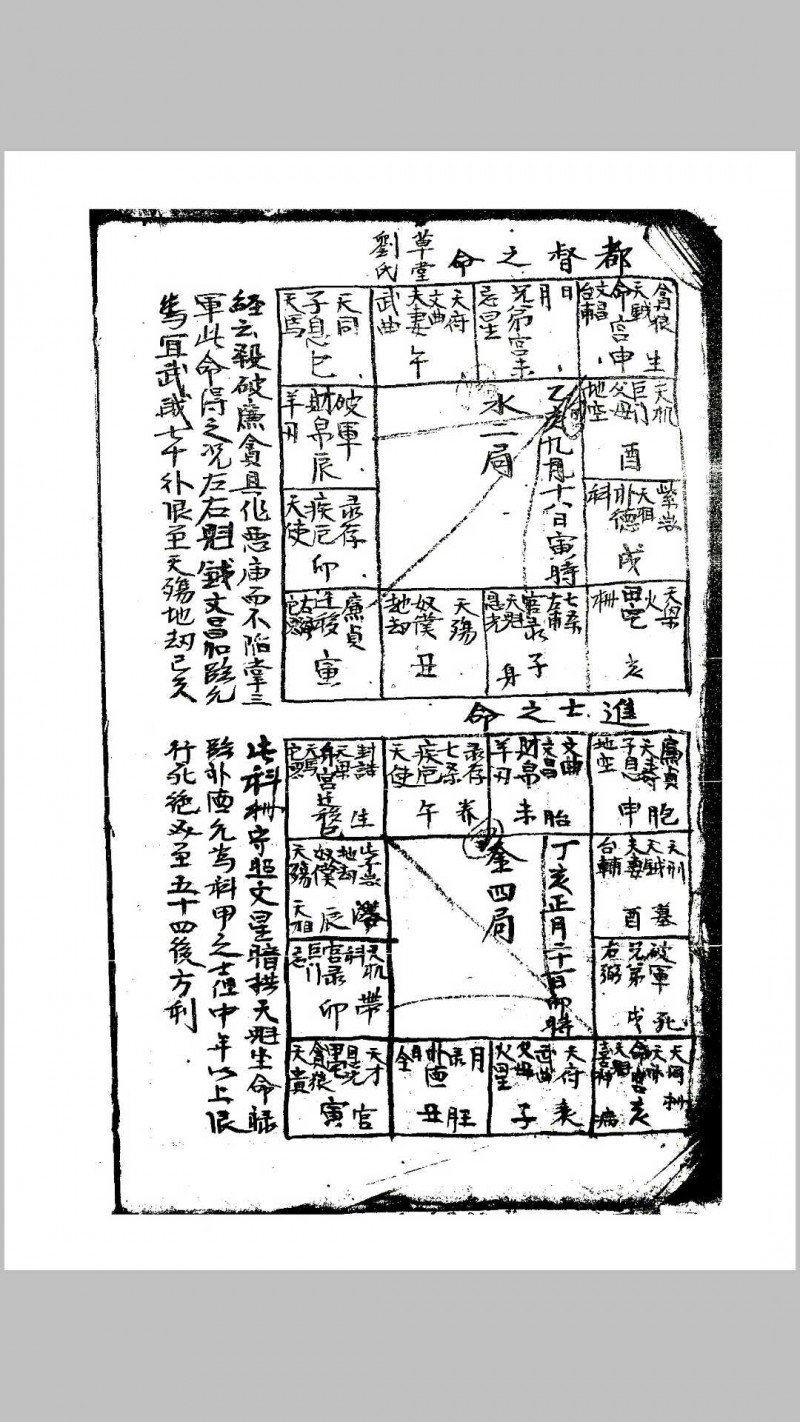 都督之命
草堂
劉氏
貪狼 生
天鉞
命宮申
文昌
台輔
日
月
兄弟宮未
忌星
天府
文曲
夫妻 午
武曲
天同
子息 巳
天馬
天机
巨门
父母 酉
地空
破軍
財帛辰
羊刃
紫微
天相
福德 戌
科
录存
疾厄 卯
天使
天梁
火
田宅 亥
权
七杀
左甫
官录 子
天魁
恩光
身
天殤
奴僕 丑
地劫
廉貞
迁移 寅
乙亥九月十八日寅時
水二局
經云殺破廉貪具作惡庙而不陷掌三
軍此命得之况左右魁鉞文昌加臨尤
為宜武職七十外限至天殤地劫已矣
進士之命
廉貞 胞
天壽
子息 申
地空
文曲
文昌 胎
財帛 未
羊刃
录存
七杀 养
疾厄 午
天使
封誥 生
天梁
身宮迁移巳
天馬
天刑
天鉞 墓
夫妻 酉
台輔
紫微
地劫
奴僕 辰
天殤 天相
破軍 死
兄弟 戌
右弼
天机
科 帶
官录 卯
巨门
忌
天同 权
命宮 亥
天魁
病
天府
武曲
父母 子
火星
月
录 旺
福德 丑
天才
恩光 官
田宅 寅
貪狼
天貴
丁亥正月二十一日卯時
金四局
此科权守照文星暗拱天魁生命禄
臨福德尤為科甲之士但中年以上限
行死絕必至五十四後方利